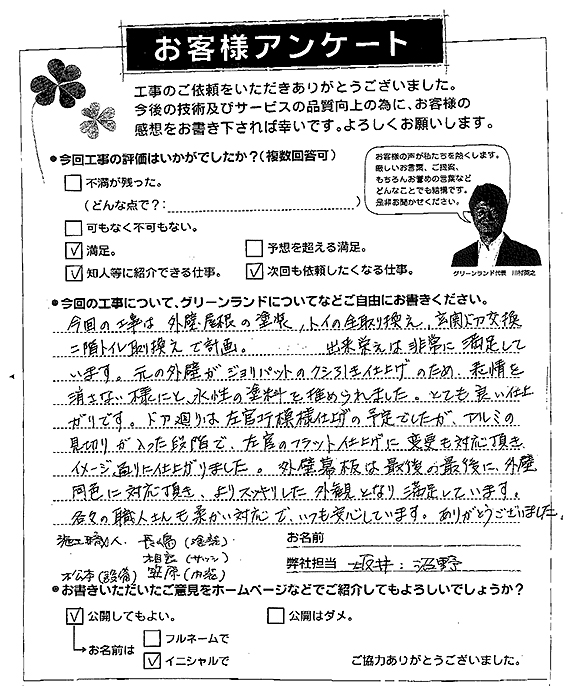 お客様アンケート
工事のご依頼をいただきありがとうございました。
今後の技術及びサービスの品質向上の為に、お客様の
感想をお書き下されば幸いです。よろしくお願いします。
●今回工事の評価はいかがでしたか?(複数回答可)
お客様の声が私たちを熱くします。
厳しいお言葉、ご提案、
もちろんお誉めの言葉など
どんなことでも結構です。
是非お聞かせください。
グリーンランド代表 川村
□不満が残った。
(どんな点で?: )
□可もなく不可もない。
☑満足。 □予想を超える満足。
☑知人等に紹介できる仕事。 ☑次回も依頼したくなる仕事。
●今回の工事について、グリーンランドについてなどご自由にお書きください。
今回の工事は 外壁屋根の塗装,トイの全取り換え,玄関ドア交換
二階トイレ取換えで計画。 出来栄えは非常に満足して
います。元の外壁がジョリパットのクシ引き仕上げのため、表情を
消さない様にと、水性の塗料を推められました。とても良い仕上
がりです。ドア廻りは左官 模様仕上げの予定でしたが、アルミの
見切りが入った段階で、左官のフラット仕上げに変更も対応頂き、
イメージ通りに仕上がりました。外壁幕板は最後の最後に、外壁
同色に対応頂き、よりスッキリした外観となり満足しています。
各々の職人さんも柔かい対応で、いつも安心しています。ありがとうございました。
施工職人. 長嶋(塗装)
(サッシ)
松本(設備) 笠原(内装)
お名前
弊社担当 坂井:沼野
●お書きいただいたご意見をホームページなどでご紹介してもよろしいでしょうか?
☑公開してもよい。 □公開はダメ。
お名前は □フルネームで
☑イニシャルで
ご協力ありがとうございました。